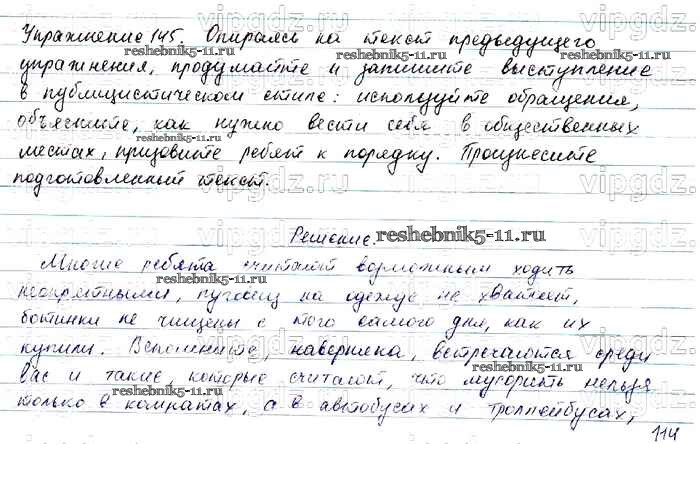 Упражнение 145. Опираясь на текст предыдущего
упражнения, продумайте и запишите выступление
в публицистическом стиле: используйте обращения,
объясните, как нужно вести себя в общественных
местах, призовите ребят к порядку. Произнесите
подготовленный текст.
Решение.
Многие ребята считают возможным ходить
неопрятными, пуговиц на одежде не хватает,
ботинки не чищены с того самого дня, как их
купили. Вспомните, наверняка, встречаются среди
вас и такие которые считают, что мусорить нельзя
только в комнатах, а в автобусах и троллейбусах,
114
vipgdz.ru
reshebnik5-11.ru